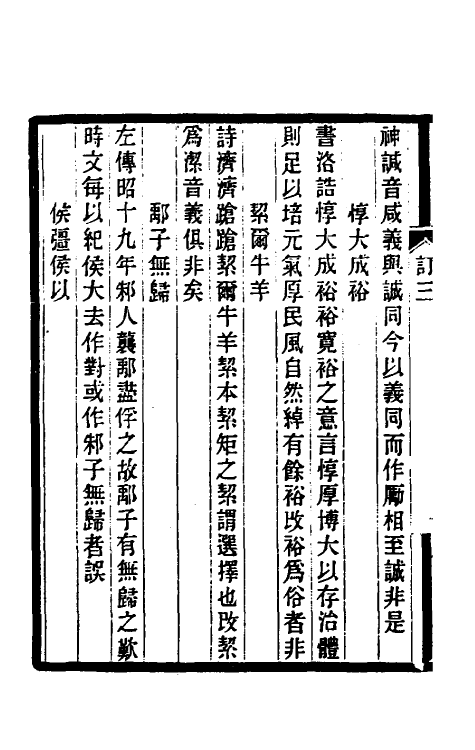 神諴音咸義與誠同今以義同而作勵相至誠非是
惇大成裕
書洛誥惇大成裕裕寬裕之意言惇厚博大以存治體
則足以培元氣厚民風自然綽有餘裕改裕爲俗者非
絜爾牛羊
詩濟濟蹌蹌絜爾牛羊絜本絜矩之絜謂選擇也改絜
爲潔音義俱非矣
鄅子無歸
左傳昭十九年邾人襲鄅盡俘之故鄅子有無歸之歎
時文每以紀侯大去作對或作邾子無歸者誤
侯彊侯以
訂三